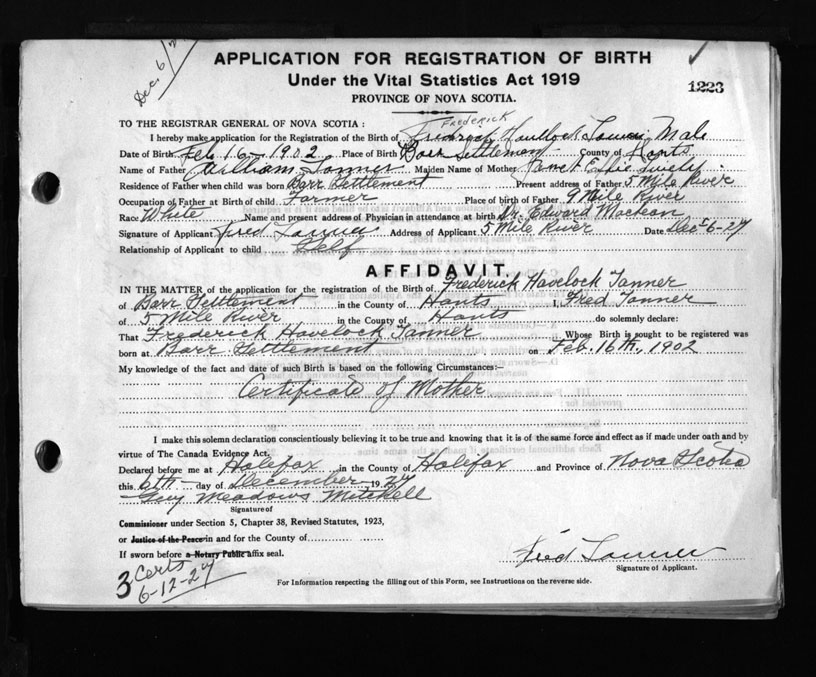 Dec. 6/2
APPLICATION FOR REGISTRATION OF BIRTH
Under the Vital Statistics Act 1919
1223
PROVINCE OF NOVA SCOTIA.
TO THE REGISTRAR GENERAL OF NOVA SCOTIA :
FREDERICK
I hereby make application for the Registration of the Birth of Havelock Tanner Male
Date of Birth Feb 16-1902. Place of Birth Barr Settlement County of Hants
Name of Father William Tanner Maiden Name of Mother Effie
Residence of Father when child was born Barr Settlement Present address of Father 5 Mile River
Occupation of Father at Birth of child Farmer Place of birth of Father 9 Mile River
Race White Name and present address of Physician in attendance at birth Dr. Edward
Signature of Applicant Fred Tanner Address of Applicant 5 Mile River Date Dec 6-27
Relationship of Applicant to child Self
AFFIDAVIT.
IN THE MATTER of the application for the registration of the Birth of Frederick Havelock Tanner
of Barr Settlement in the County of Hants I, Fred Tanner
of 5 Mile River in the County of Hants do solemnly declare:
That Frederick Havelock Tanner Whose Birth is sought to be registered was
born at Barr Settlement on Feb. 16th, 1902
My knowledge of the fact and date of such Birth is based on the following Circumstances:–
Certificate of Mother
I make this solemn declaration conscientiously believing it to be true and knowing that it is of the same force and effect as if made under oath and by
virtue of The Canada Evidence Act.
Declared before me at Halifax in the County of Halifax and Province of Nova Scotia
this 6th day of December 1927
Guy Meadows Mitchell
Signature of
Commissioner under Section 5, Chapter 38, Revised Statutes, 1923,
or Justice of the Peace in and for the County of
If sworn before a Notary Public affix seal.
Fred Tanner
Signature of Applicant.
3 Certs
6-12-27
For Information respecting the filling out of this Form, see Instructions on the reverse side.